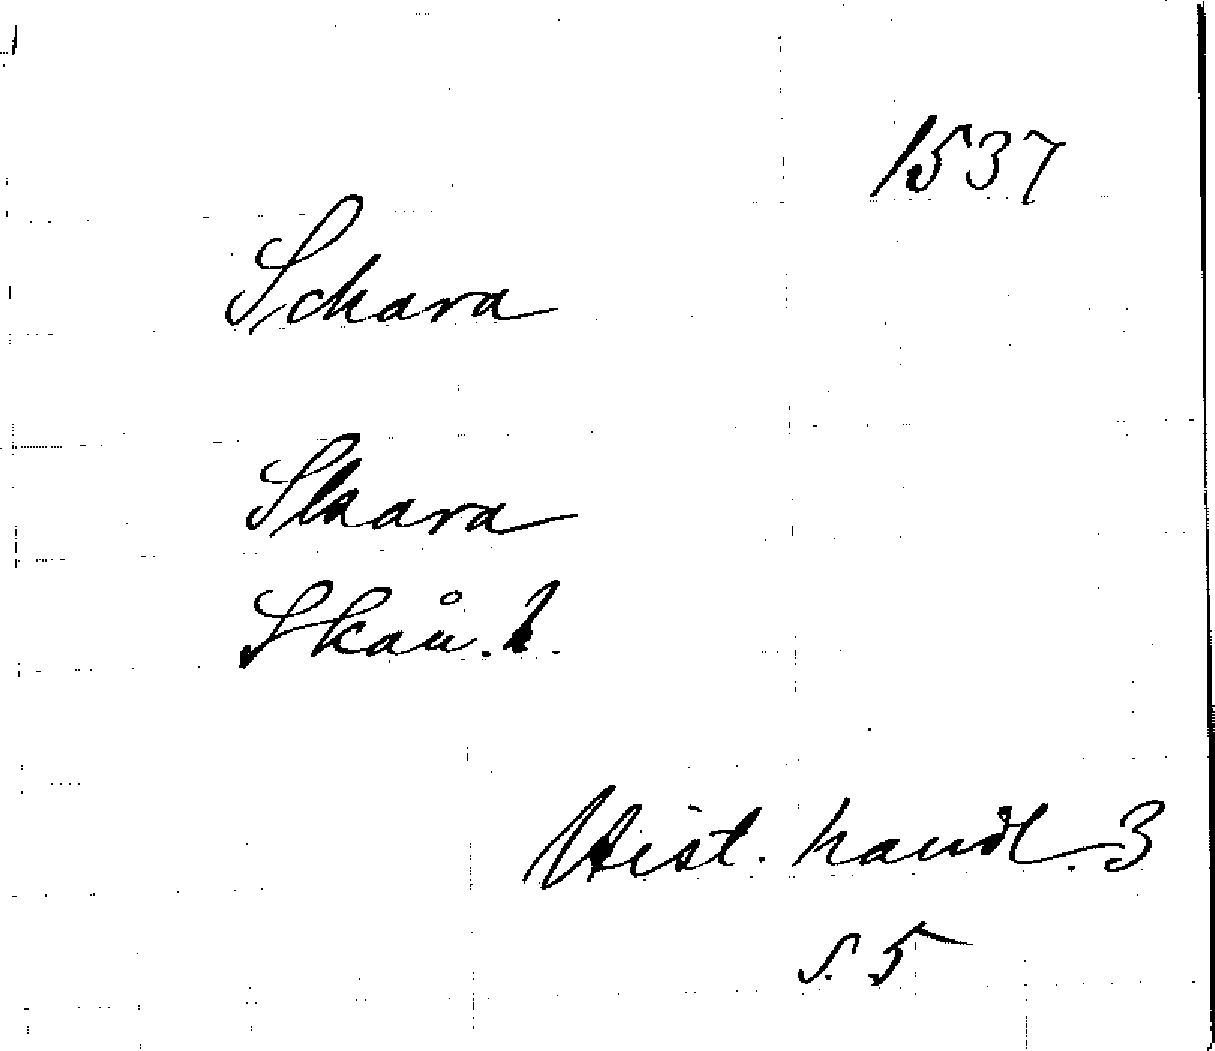 1537
Schara
Skara
Skån. l.
Hist. handl. 3
s. 5